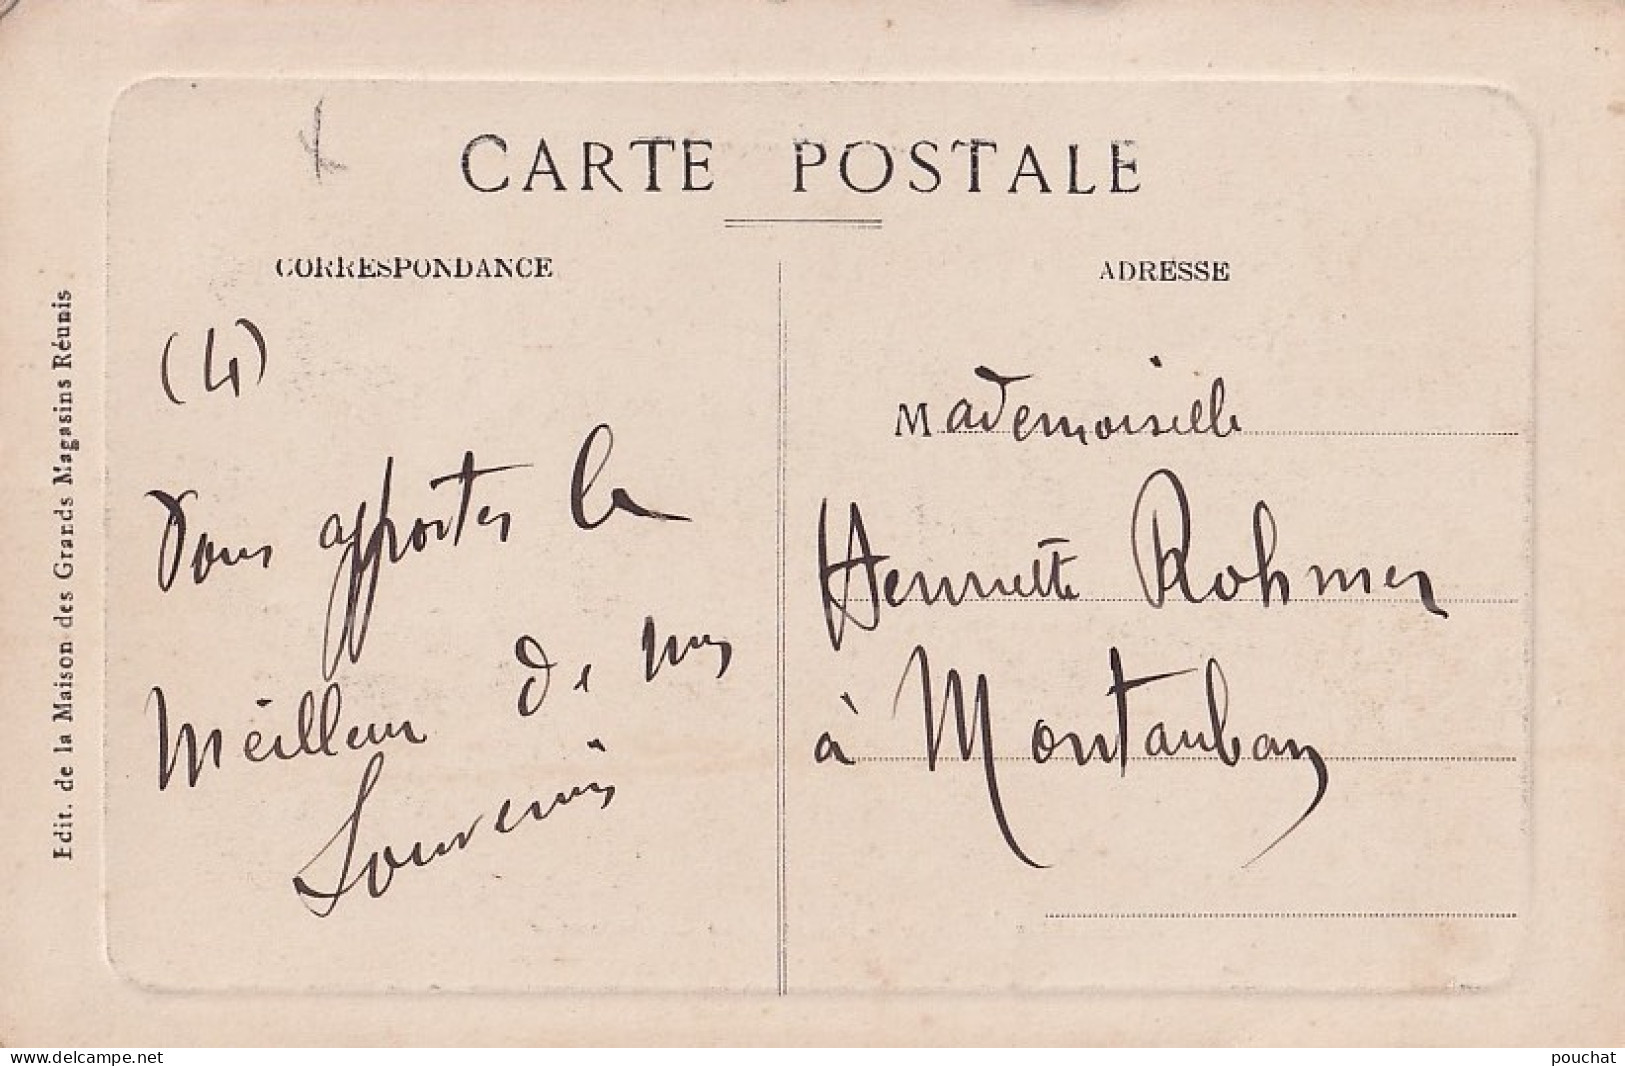 CARTE POSTALE
CORRESPONDANCE
ADRESSE
(4)
Vous apporter le
Meilleur de mes
Souvenirs
Mademoiselle
Henriette Rohmer
à Montauban
Edit. de la Maison des Grands Magasins Réunis
www.delcampe.net
pouchat